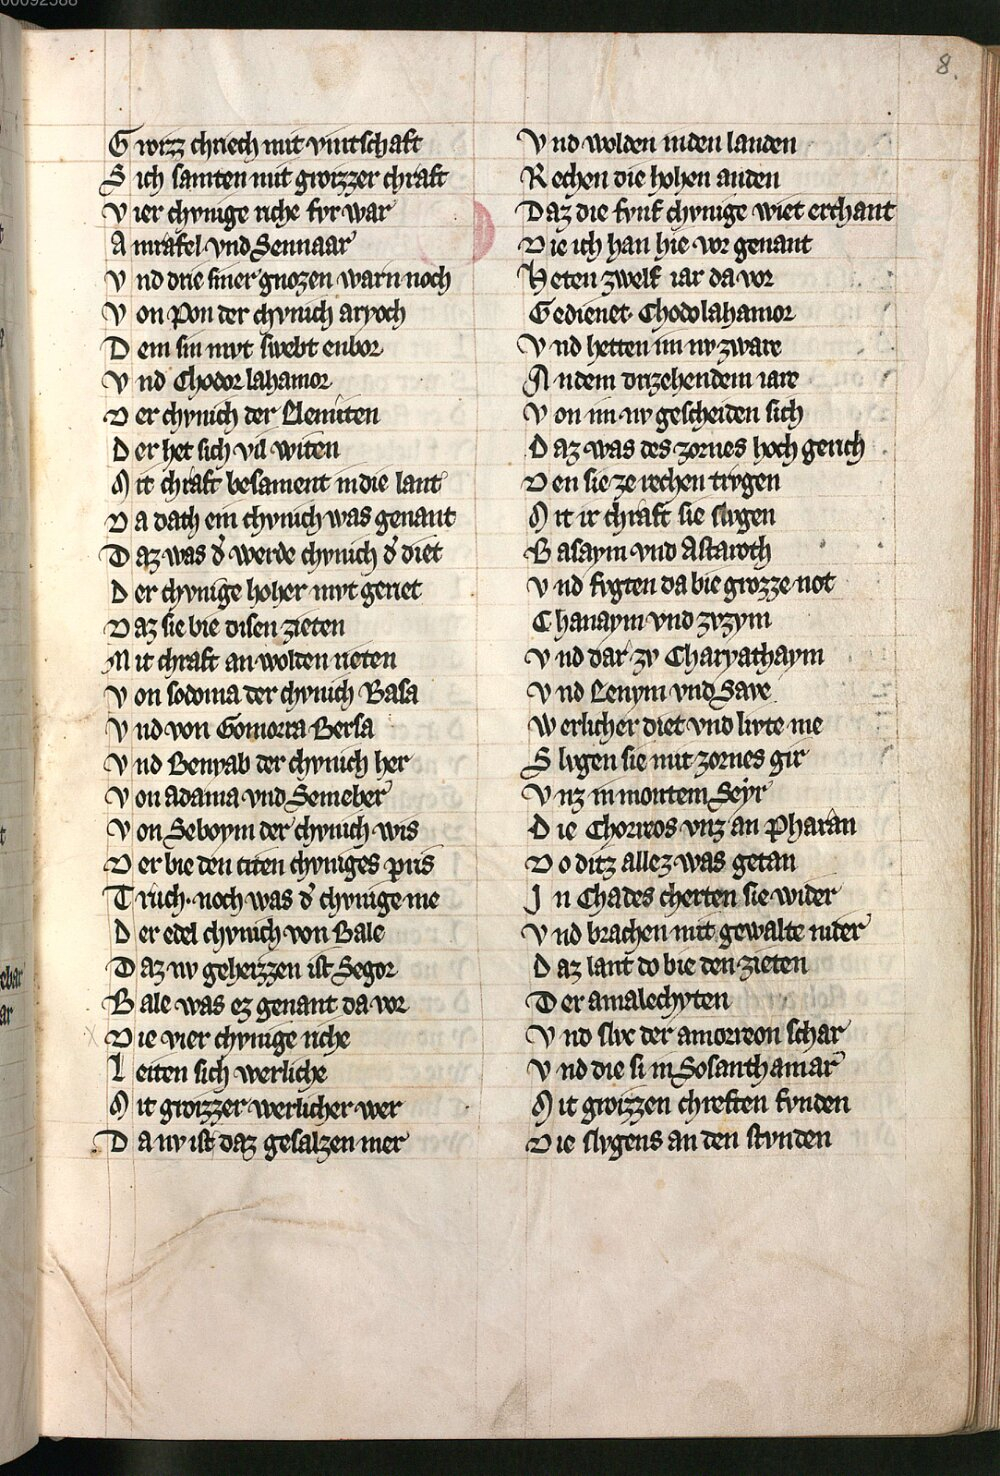 00092588
8.
G roizz chriech mit vintschaft
S ich samten mit groizzer chraft
V ier chvnige riche fvr war
A mrafel vnd Sennaar
V nd drie siner gnozen warn noch
V on Pon der chvnich aryoch
D em sin mvt swebt enbor
V nd Chodor lahamor
D er chvnich der Elemiten
D er het sich vil witen
M it chraft besament in die lant
D a dach ein chvnich was genant
D az was d' werde chvnich d' diet
D er chvnige hoher mvt geriet
D az sie bie disen zieten
M it chraft an wolden rieten
V on sodoma der chvnich Basa
V nd von Gomorra Bersa
V nd Benyab der chvnich her
V on adama vnd Semeber
V on Seboym der chvnich wis
D er bie den citen chvniges pris
T rvch. noch was d' chvnige me
D er edel chvnich von Bale
D az nv geheizzen ist Segor
B ale was ez genant da vor
D ie vier chvnige riche
L eiten sich werliche
M it groizzer werlicher wer
D a nv ist daz gesalzen mer
V nd wolden in den landen
R echen die hohen anden
D az die fvnf chvnige wiet erchant
D ie ich han hie vor genant
H eten zwelf iar da vor
G edienet Chodolahamor
V nd hetten im nv zware
A n dem drizehendem iare
V on im nv gescheiden sich
D az was des zornes hoch gerich
D en sie ze rechen trvgen
M it ir chraft sie slvgen
B asaym vnd Astaroth
V nd fvgten da bie grozze not
C hanaym vnd zvzym
V nd dar zv Charyathaym
V nd Lenym vnd Save
W erlicher diet vnd livte me
S lvgen sie mit zornes gir
V nz in montem Seyr
D ie Chorreos vnz an Pharan
D o ditz allez was getan
I n Chades cherten sie wider
V nd brachen mit gewalte nider
D az lant do bie den zieten
D er amalechyten
V nd slvc der amorreon schar
V nd die si in Sosanthamar
M it groizzen chreften fvnden
D ie slvgens an den stvnden